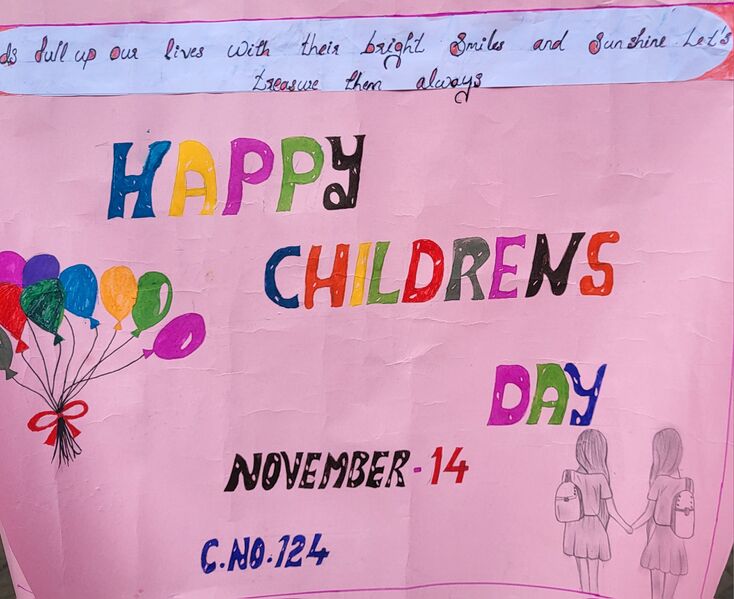 ds full up our lives with their bright Smiles and Sunshine. Let's
treasure them always
HAPPY
CHILDRENS
DAY
NOVEMBER-14
C.NO.124